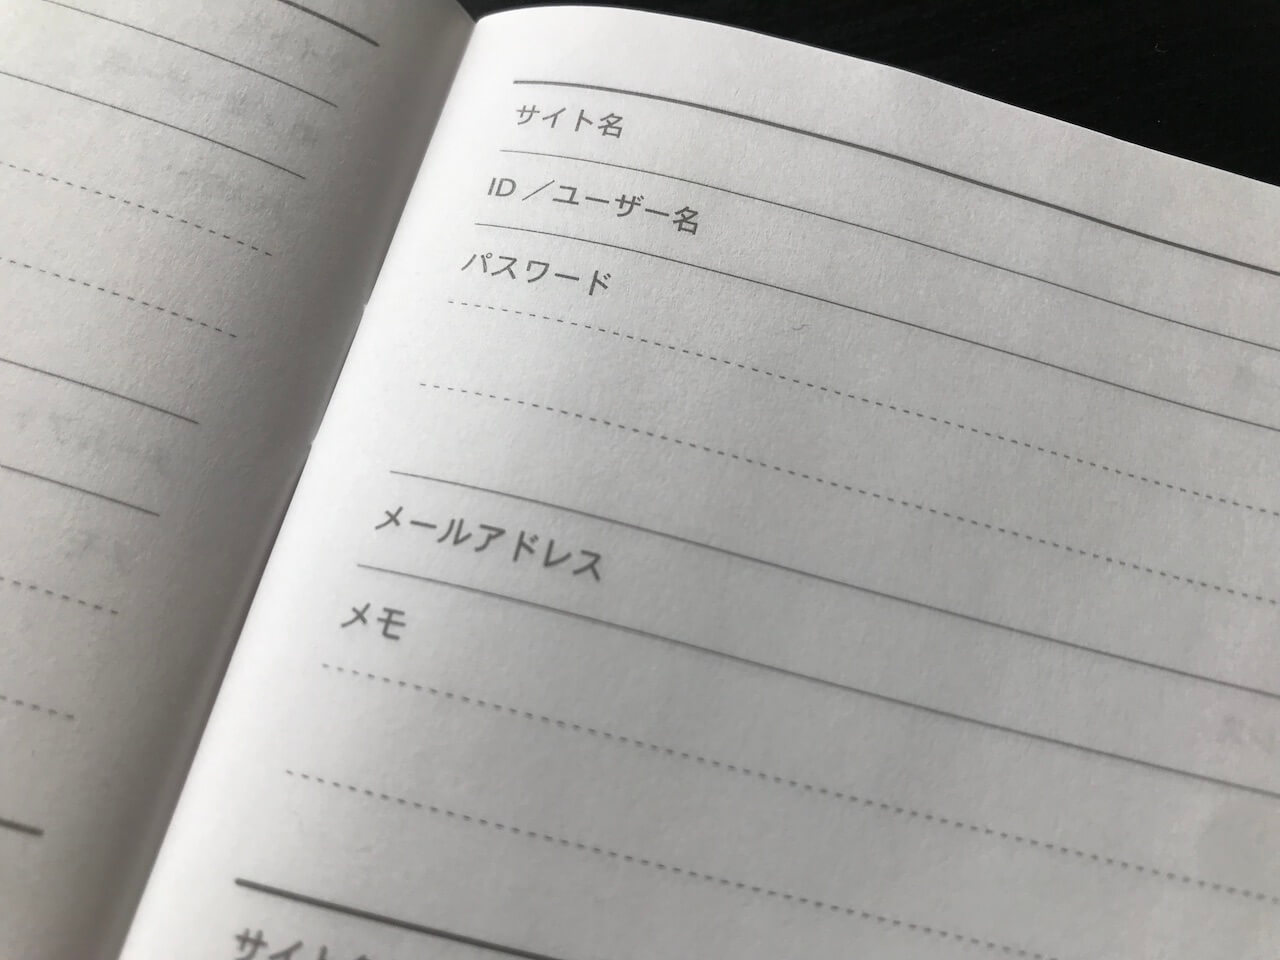 サイト名
ID／ユーザー名
パスワード
メールアドレス
メモ
サイト